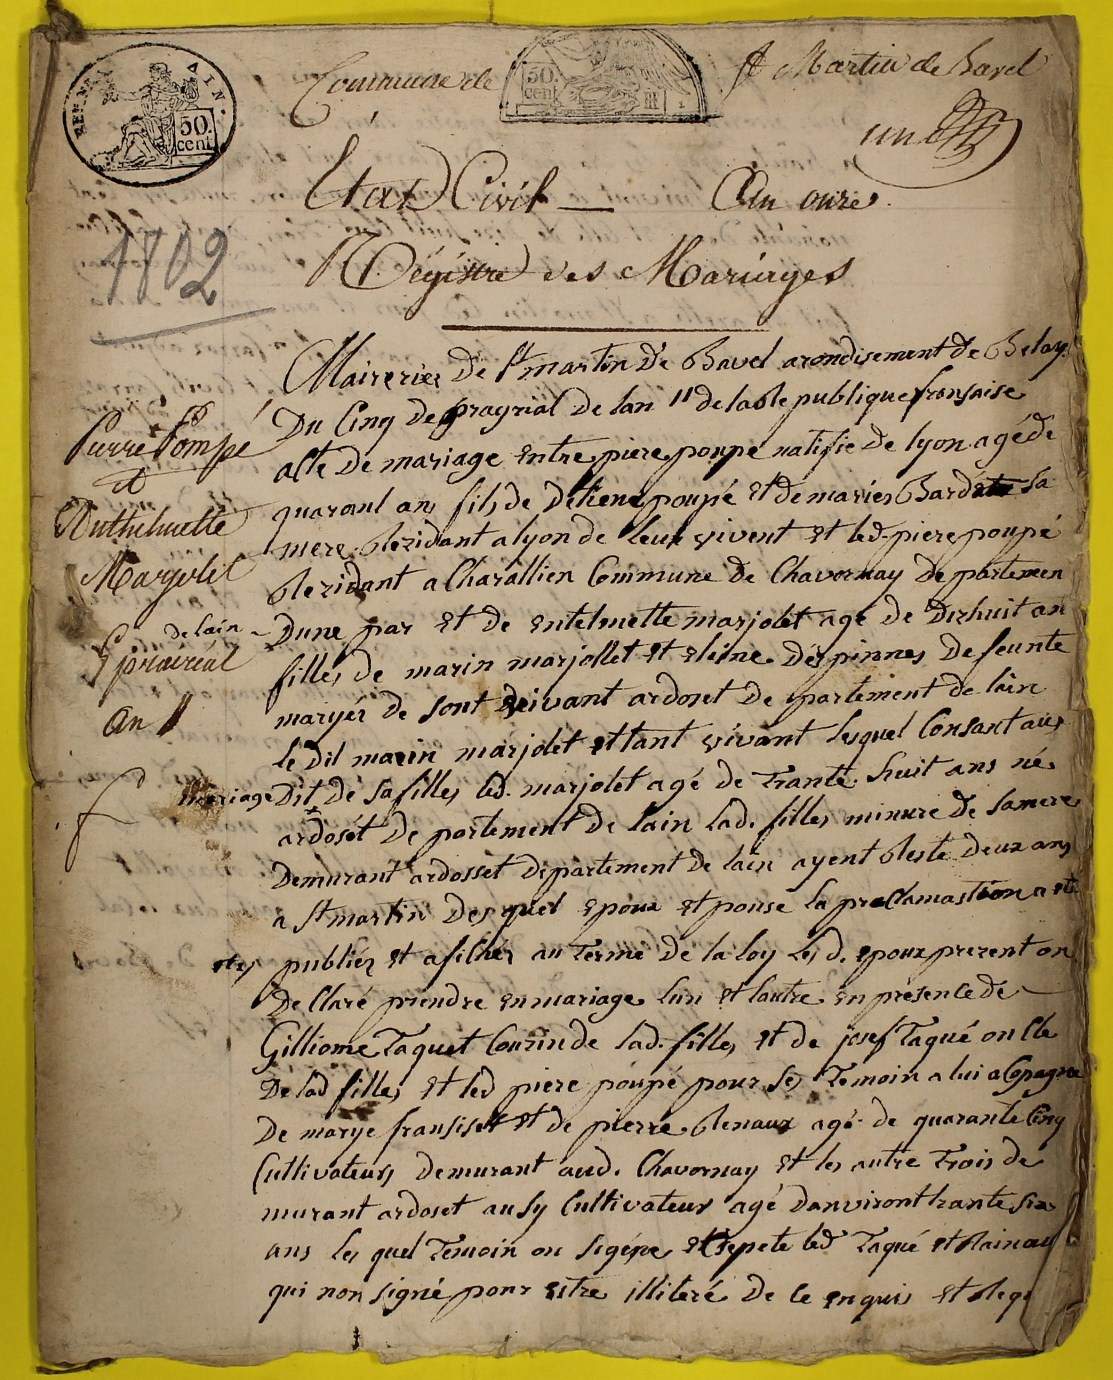 AIN.
50. cent
Commune de
50. cent
St Martin de Bavel
un
État Civil — An onze
1802
Régistre des Mariages
Mairerier de St martin de Bavel arondisement de Belay
Du Cinq de pragrial de lan 11 de la Republique fransaise
acte de mariage entre piere poupe natifie de lyon agé de
quarant an, fils de Detiene poupé et de maries Bard sa
mere Rezidant a lyon de leux vivent et led. piere poupé
Rezidant a Charallien Commune de Chavornay Departemen
Dune par et de entelmette marjolet agé de Dizhuit an
filles de marin marjollet et eleine Despinnes Defeunte
maryér de sont vivant ardoset De partement de lain
le dil marin marjolet ettant vivant lesquel Consant au
mariage Dit de sa filles led. marjolet agé de Trante huit ans né
ardosét De partement de lain lad. filles minure de sa mere
Demurant ardosset departement de lain ayent Reste Deux ans
a St martin Desquel epoux et pouse la proclamastion a ete
etes publiér et afilhér au Terme de la loy les d. epoux prezent on
De Claré prendre en mariage lun et lautre en présence de
Gilliome Taquet Couzin de lad. filles et de josef Taqué on Cle
De lad filles et led piere poupé pour ses Temoin a lui a Copagne
De marye fransiset et de pierre Renaux agé de quarante Cinq
Cultivateurs demurant aud. Chavornay et les autre Trois de
murant ardoset ausy Cultivateur agé danviront trante six
ans les quel Temoin on sigére et sepete led Taqué et Rainau
qui non signé pour estre illiteré De ce enquis et Req
Pierre Pompé
et
Anthelmette
Marjolet
de lain
5 prairial
An 11